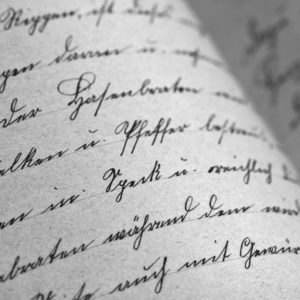 Rippen, ist dieses
gen daran u.
der Hasenbraten
elken u. Pfeffer bestreu
en in Speck u. reichlich
ebraten während dem
te auch mit Gewür